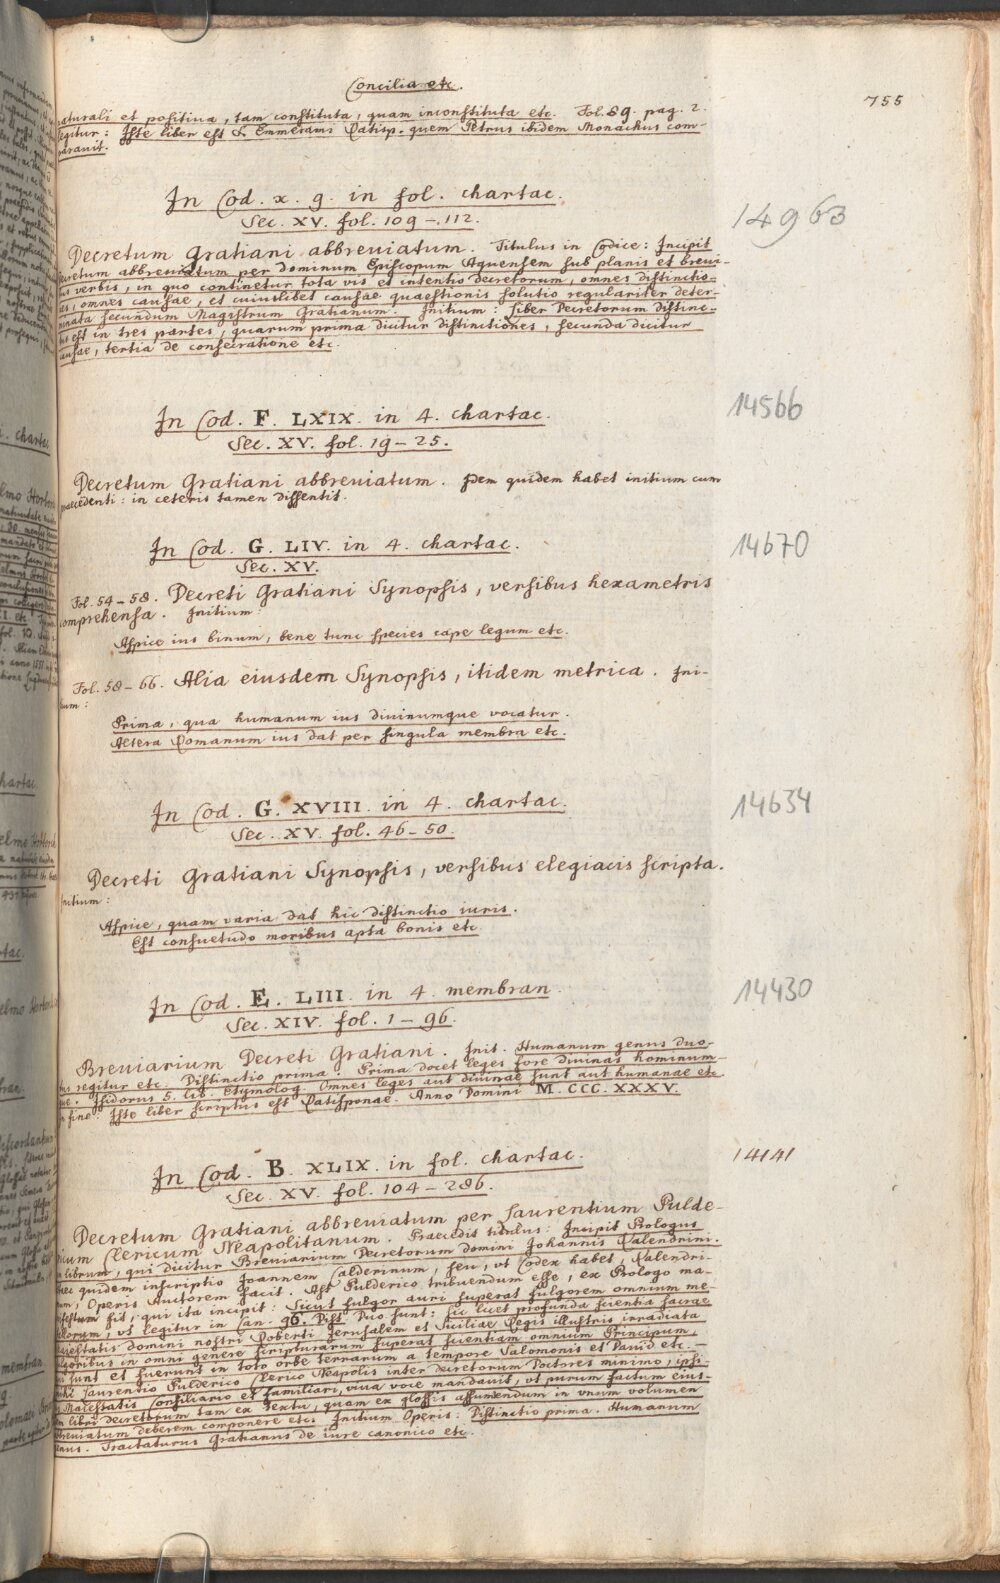 Concilia etc.
755
naturali et positiua, tam constituta, quam inconstituta etc. Fol. 89. pag. 2.
legitur: Iste liber est S. Emmerami Ratisp. quem Petrus ibidem Monachus com-
parauit.
In Cod. x. 9. in fol. chartac.
Sec. XV. fol. 109-112.
14963
Decretum Gratiani abbreuiatum. Titulus in Codice: Incipit
decretum abbreuiatum per dominum Episcopum Aquensem sub planis et breui-
bus verbis, in quo continetur tota vis et intentio decretorum, omnes distinctio-
nes, omnes causae, et cuiuslibet causae quaestionis solutio regulariter deter-
minata secundum Magistrum Gratianum. Initium: Liber Decretorum distinc-
tus est in tres partes, quarum prima dicitur distinctiones, secunda dicitur
causae, tertia de consecratione etc.
In Cod. F. LXIX. in 4. chartac.
Sec. XV. fol. 19-25.
14566
Decretum Gratiani abbreuiatum. Idem quidem habet initium cum
praecedenti: in ceteris tamen dissentit.
In Cod. G. LIV. in 4. chartac.
Sec. XV.
14670
Fol. 54-58. Decreti Gratiani Synopsis, versibus hexametris
comprehensa. Initium:
Aspice ius binum, bene tunc species cape legum etc.
Fol. 58-66. Alia eiusdem Synopsis, itidem metrica. Ini-
tium:
Prima, qua humanum ius diuinumque vocatur.
Altera Romanum ius dat per singula membra etc.
In Cod. G. XVIII. in 4. chartac.
Sec. XV. fol. 46-50.
14634
Decreti Gratiani Synopsis, versibus elegiacis scripta.
Initium:
Aspice, quam varia dat hic distinctio iuris.
Est consuetudo moribus apta bonis etc.
In Cod. E. LIII. in 4. membran.
Sec. XIV. fol. 1-96.
14430
Breuiarium Decreti Gratiani. Init. Humanum genus duo-
bus regitur etc. Distinctio prima. Prima docet leges fore diuinas hominum-
que. Isidorus 5. lib. Etymolog. Omnes leges aut diuinae sunt aut humanae etc.
In fine: Iste liber scriptus est Ratisponae. Anno Domini M. CCC. XXXV.
In Cod. B. XLIX. in fol. chartac.
Sec. XV. fol. 104-286.
14141
Decretum Gratiani abbreuiatum per Laurentium Pulde-
ricum Clericum Neapolitanum. Praecedit titulus: Incipit Prologus
in librum, qui dicitur Breuiarium Decretorum domini Johannis Kalendrini.
Haec quidem inscriptio Joannem Calderinum, seu, vt Codex habet, Kalendri-
num, Operis Auctorem facit. Ast Pulderico tribuendum esse, ex Prologo ma-
nifestum fit, qui ita incipit: Sicut fulgor auri superat fulgorem omnium me-
tallorum, vt legitur in Can. 96. Dist. Duo sunt: sic licet profunda scientia sacrae
Maiestatis domini nostri Roberti Jerusalem et Siciliae Regis illustris irradiata
fulgoribus in omni genere scripturarum superat scientiam omnium Principum,
qui sunt et fuerunt in toto orbe terrarum a tempore Salomonis et Dauid etc. -
mihi Laurentio Pulderico Clerico Neapolis inter decretorum Doctores minimo, ipsi-
us Maiestatis Consiliario et familiari, viua voce mandauit, vt purum factum eius-
dem libri decretorum tam ex textu, quam ex glossis assumendum in vnum volumen
abbreuiatum deberem componere etc. Initium Operis: Distinctio prima. Humanum
genus. Tractaturus Gratianus de iure canonico etc.